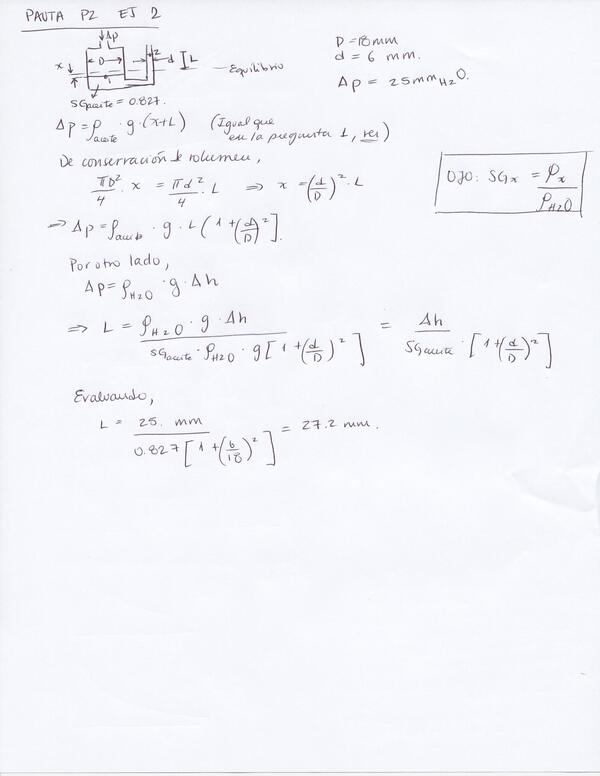 PAUTA P2 EJ 2
Δp
x D 2 d L
1
— Equilibrio
SGaceite = 0.827.
D = 18 mm
d = 6 mm.
Δp = 25 mm H2O.
Δp = ρaceite · g · (x+L) (Igual que en la pregunta 1, ver)
De conservación de volumen,
πD²/4 · x = πd²/4 · L ⇒ x = (d/D)² · L
OJO: SGx = ρx/ρH2O
⇒ Δp = ρaceite · g · L [1+(d/D)²].
Por otro lado,
Δp = ρH2O · g · Δh
⇒ L = ρH2O · g · Δh / SGaceite · ρH2O · g [1+(d/D)²] = Δh / SGaceite · [1+(d/D)²]
Evaluando,
L = 25. mm / 0.827 [1+(6/18)²] = 27.2 mm.